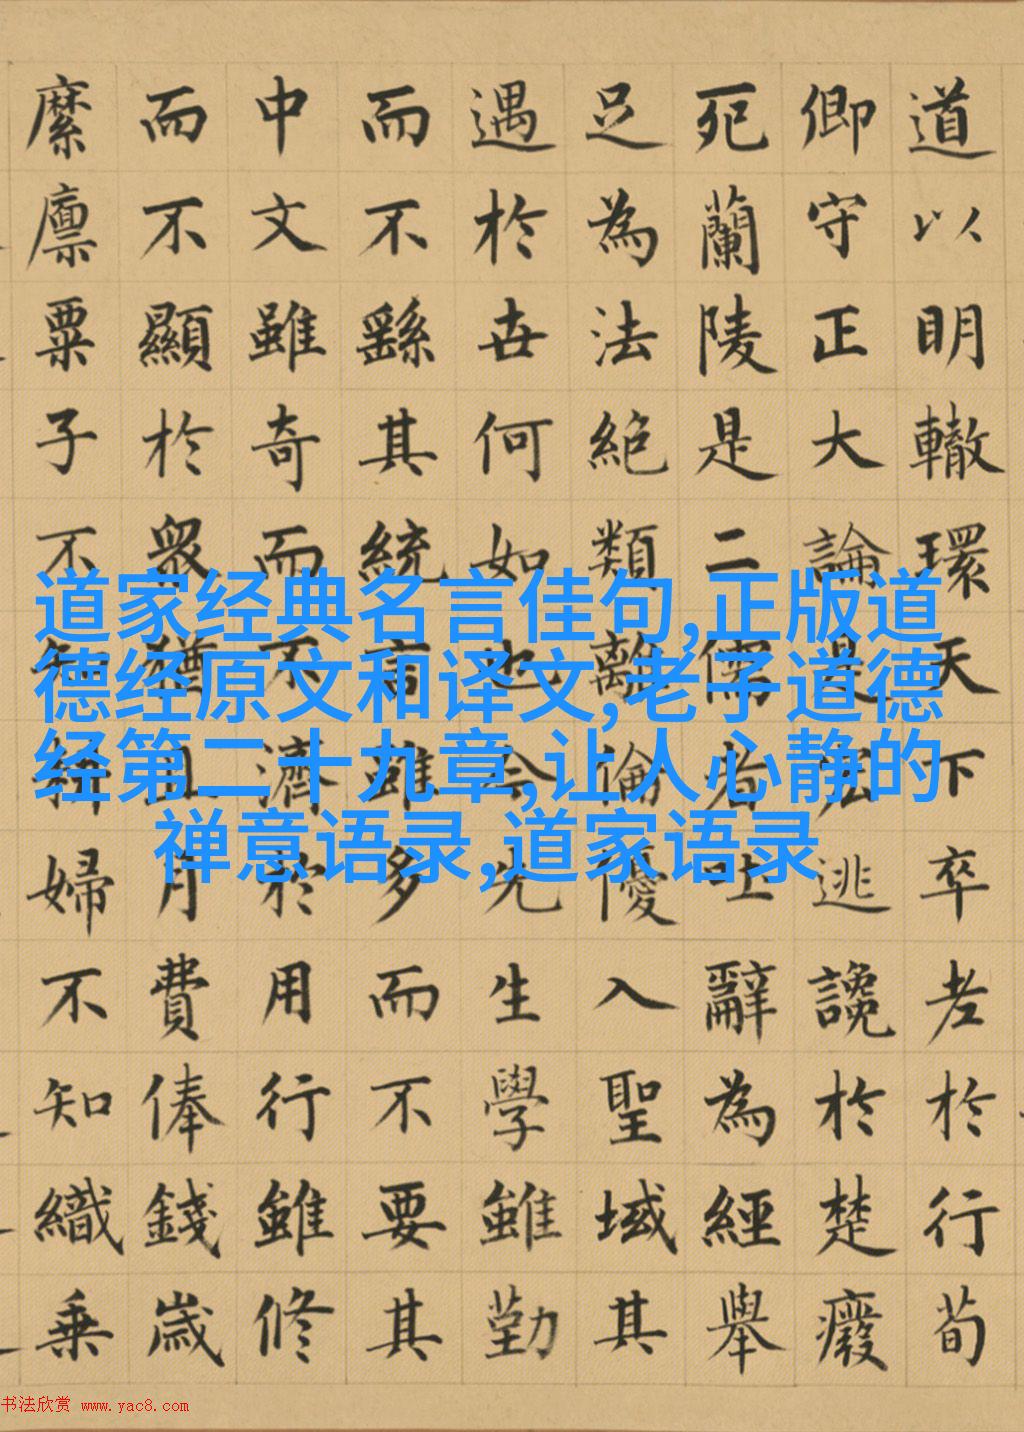 道以明轍環天下卒老於行荀
卿守正大論是弘逃讒於楚廢
死蘭陵是二儒者吐辭為經舉
足為法絕類離倫優入聖域其
遇於世何如也今先生學雖勤
而不繇其統言雖多而不要其
中文雖奇而不濟於用行雖修
而不顯於眾猶且月費俸錢歲
縻廩粟子不知耕婦不知織乘
道家经典名言佳句,正版道
德经原文和译文,老子道德
经第二十九章,让人心静的
禅意语录,道家语录
书法欣赏 www.yac8.com